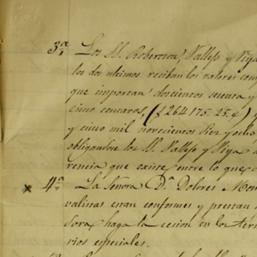 3ª Los SS. Roberson, Vallejo y Vega
los dos ultimos reciban los valores con
que importan doscientos sesenta y
cinco centavos, ($264.175.25.c)
y cinco mil novecientos diez y ocho
obligandose los SS. Vallejo y Vega
rencia que cause entre lo que
x 4ª La Señora Dª Dolores Mon
valinas eran conformes y
sora haga la cesion en los ter
rios especiales.